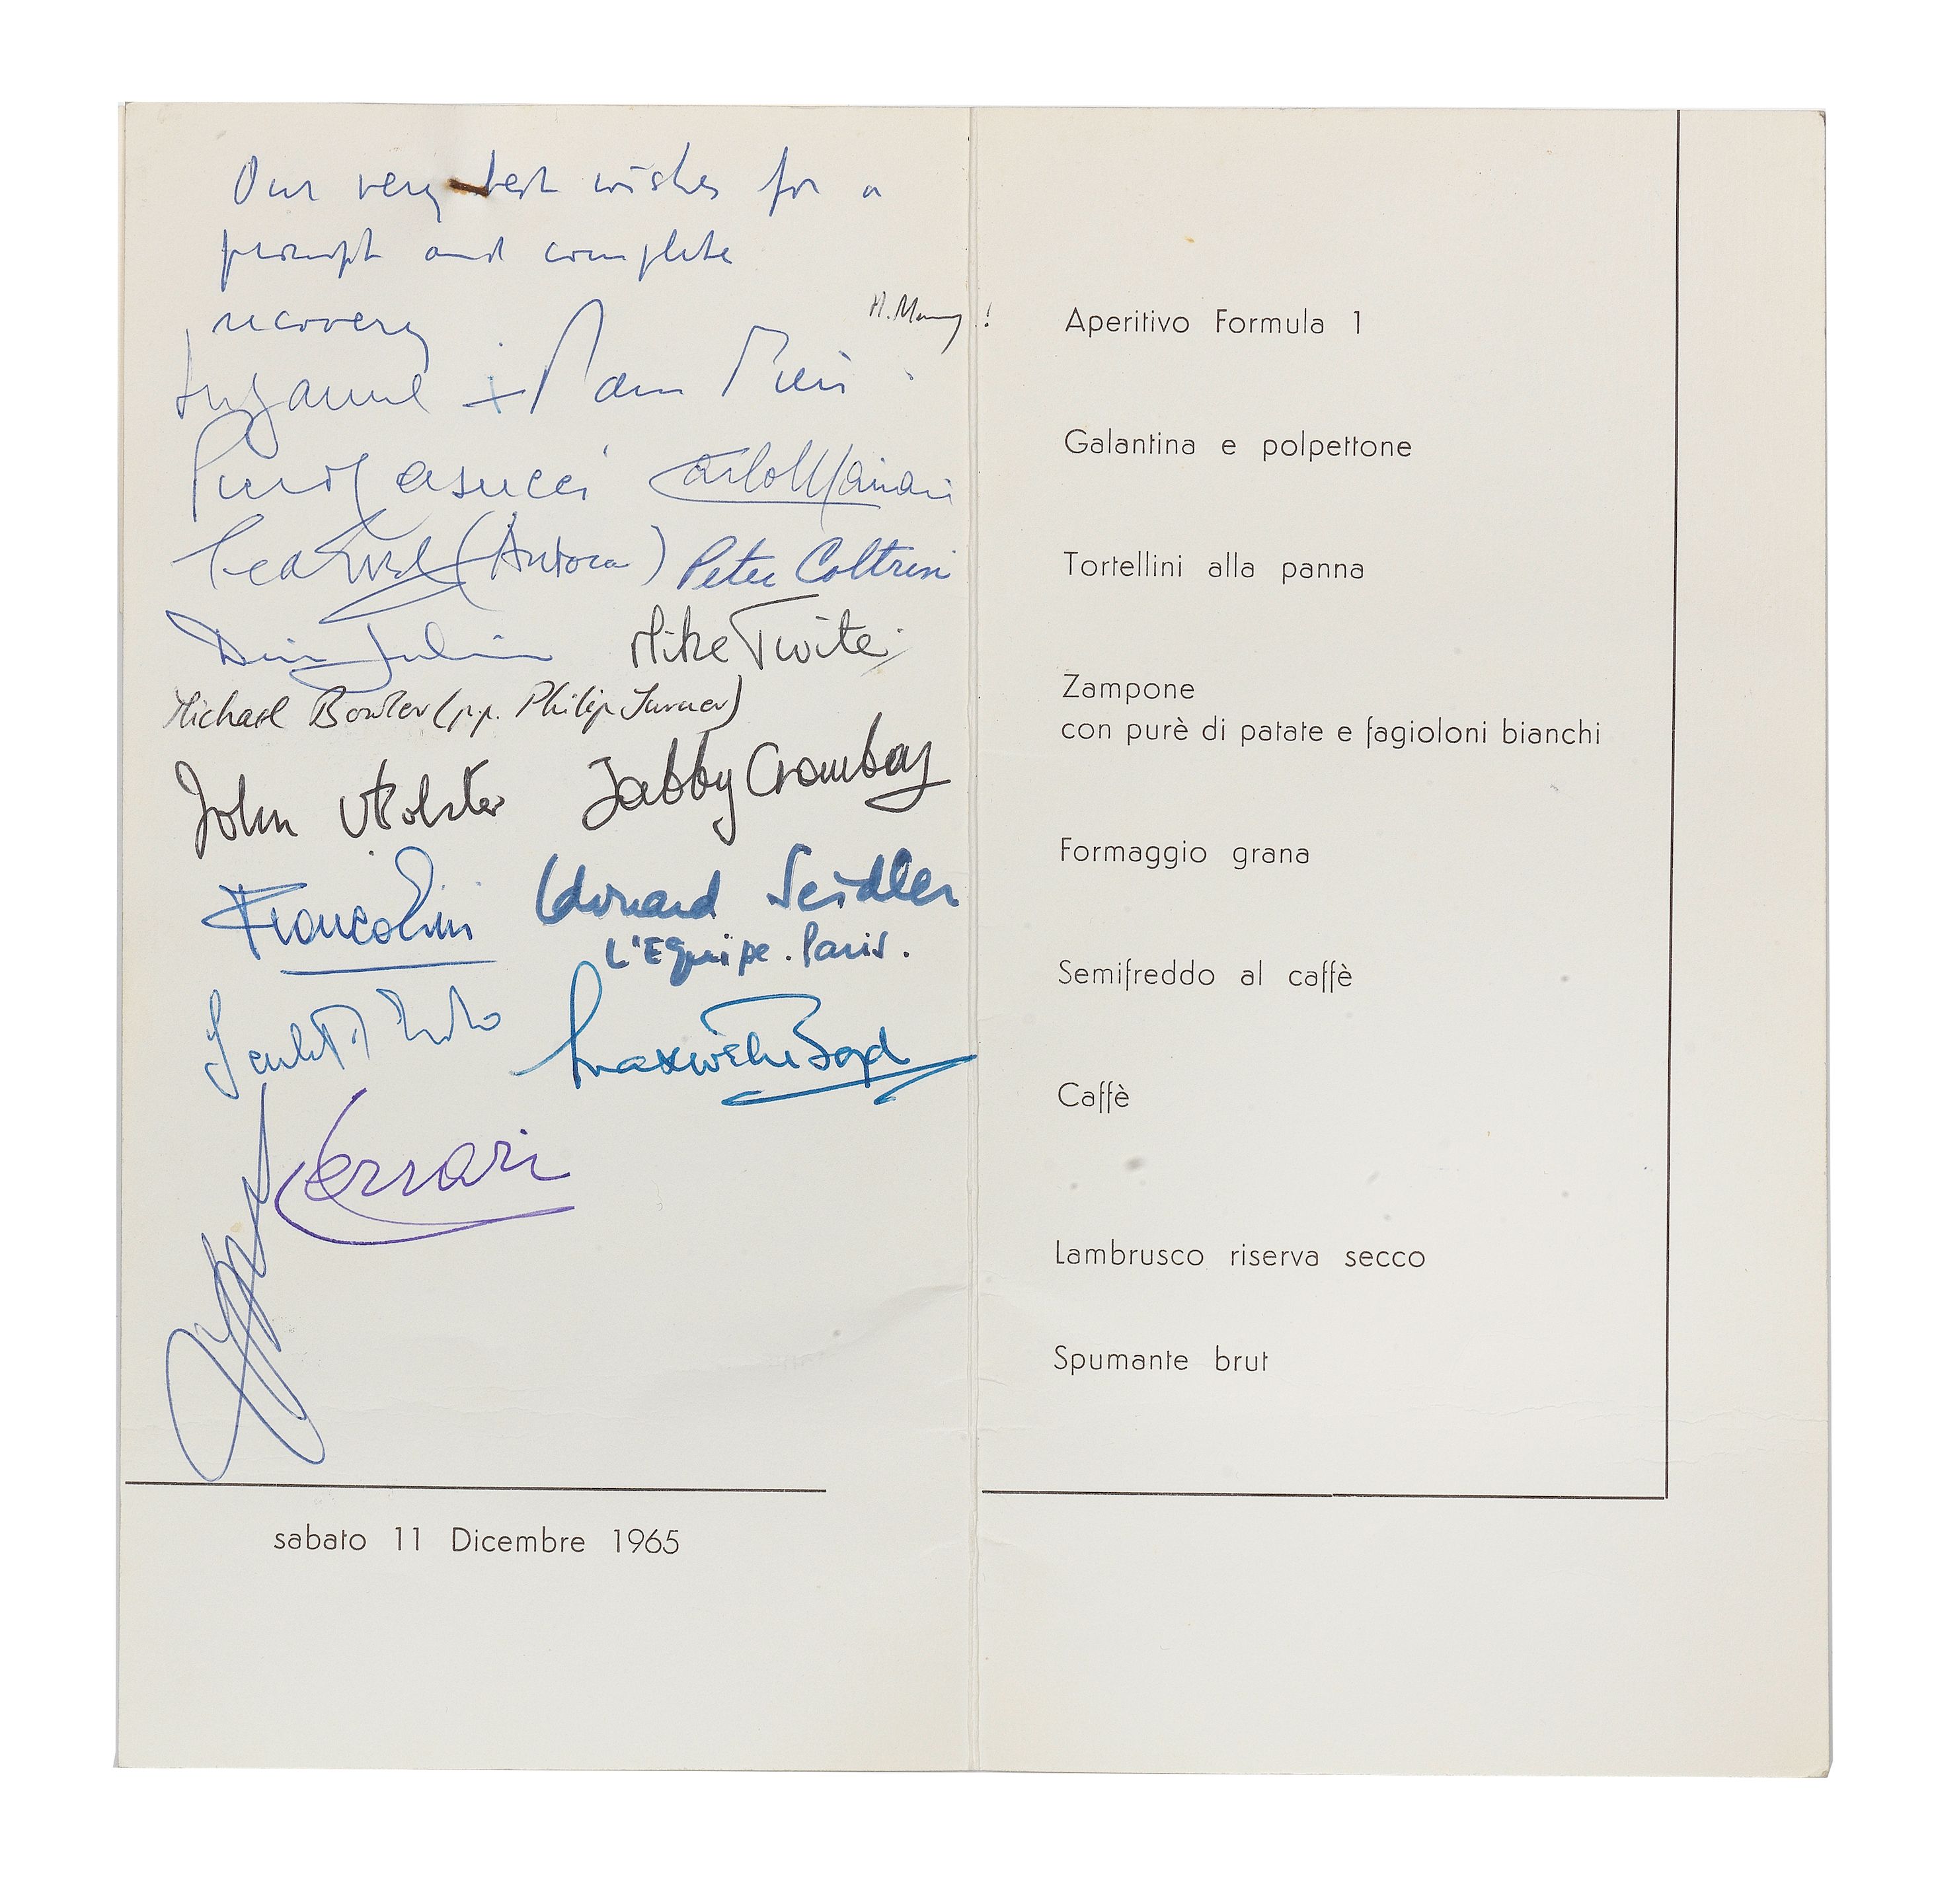 Our very best wishes for a
prompt and complete
recovery
Suzanne +
Piero Casucci Carlo Mariani
(Autocar) Peter Coltrin
Mike Twite
Michael Bowler (p.p. Philip Turner)
John Jabby Crombac
Francolini Edouard Seidler
L'Equipe. Paris.
Maxwell Boyd
Ferrari
sabato 11 Dicembre 1965
Aperitivo Formula 1
Galantina e polpettone
Tortellini alla panna
Zampone
con purè di patate e fagioloni bianchi
Formaggio grana
Semifreddo al caffè
Caffè
Lambrusco riserva secco
Spumante brut